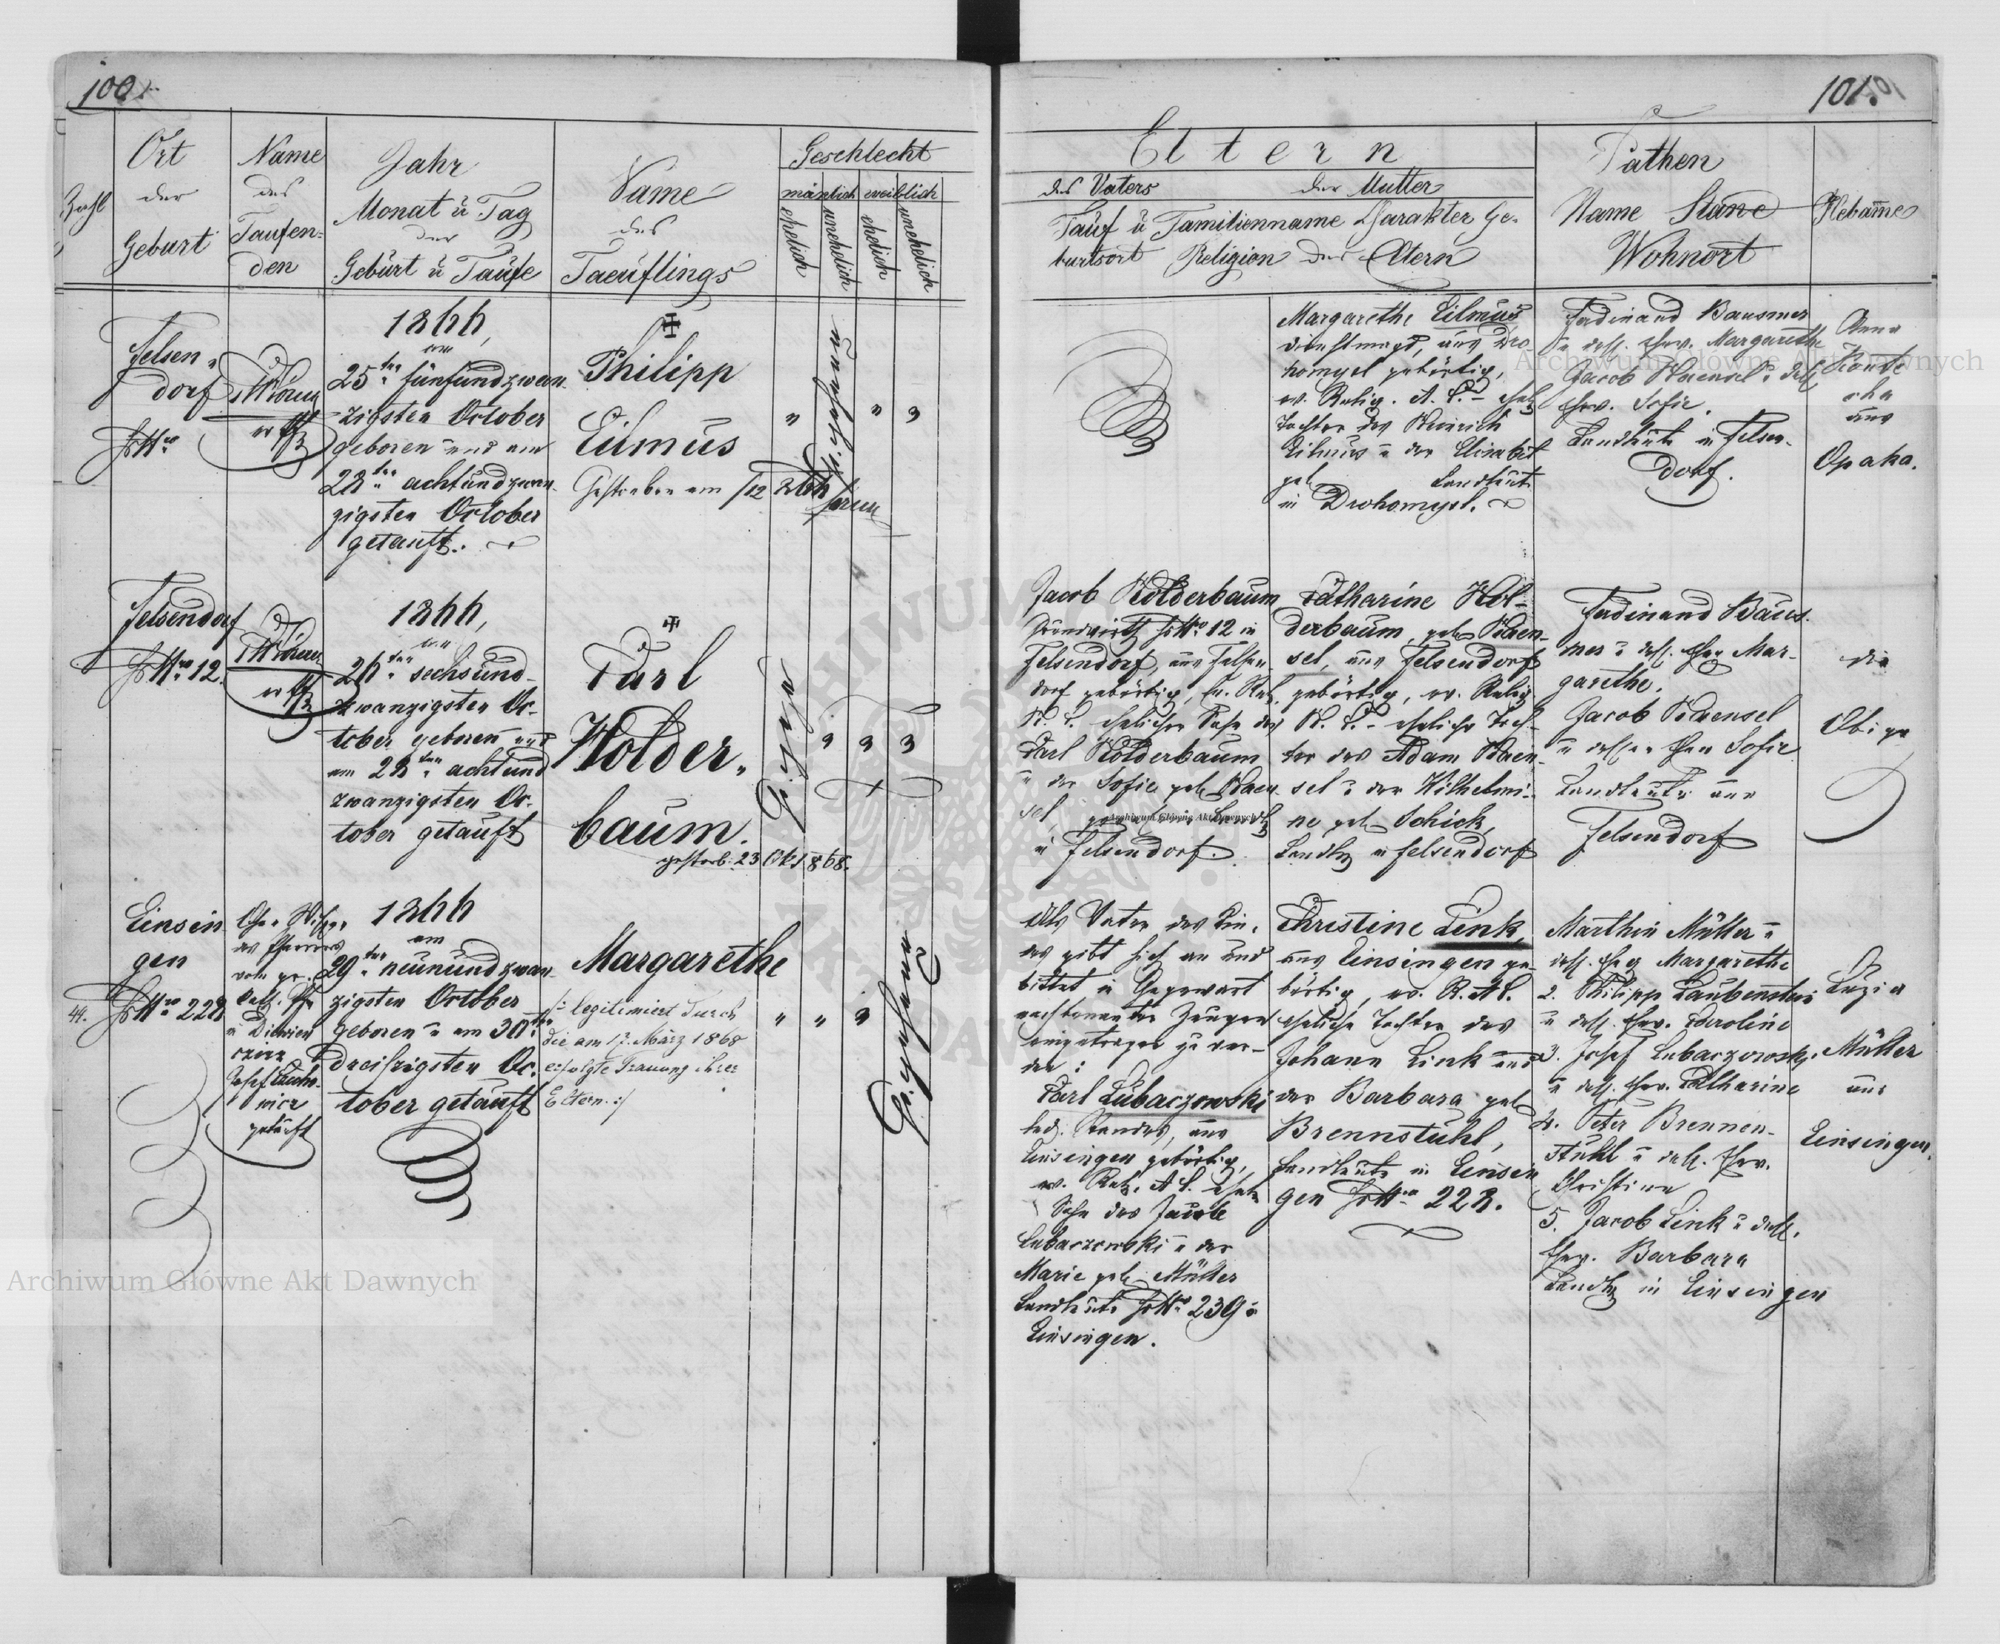 100.
Zahl
Ort
der
Geburt
Name
des
Taufen-
den
Jahr
Monat ŭ Tag
der
Gebŭrt ŭ Taŭfe
Name
des
Taeuflings
Geschlecht
mänlich weiblich
ehelich
unehelich
ehelich
unehelich
Felsen-
dorf
1866,
am
25ten fünfundzwan
zigsten October
geboren und am
28ten achtundzwan
zigsten October
getauft.
Philipp
Eilmus
Gestorben am
Felsendorf
HsNo 12.
1866,
am
26ten sechsund-
zwanzigsten Oc-
tober geboren und
am 28ten achtund
zwanzigsten Oc-
tober getauft
Carl
Holder-
baum.
gestorb. 23 Okt 1868.
Einsin
gen
44.
HsNo 228
1866
am
29ten neunundzwan
zigsten October
geboren u am 30ten
dreißigsten Oc-
tober getauft
Margarethe
/: legitimiert durch
die am 17. März 1868
erfolgte Trauung ihrer
Eltern. :/
101.
Eltern
des Vaters der Mutter
Tauf ŭ Familienname Charakter Ge-
burtsort Religion der Eltern
Pathen
Name Stand
Wohnort
Hebam̄e
Margarethe Eilmus,
Dienstmagd, aus Dro
homysl gebürtig,
ev. Relig. A. C. - ehel
Tochter des Heinrich
Eilmus u der Elisabet
geb. Landleute
in Drohomysl.
Ferdinand Bausmer
u dess. Ehew. Margarethe
Jacob Haensel u dess
Ehew. Sofie.
Landleute in Felsen-
dorf.
Anna
aus
Opaka.
Jacob Holderbaum
Grundwirth HsNo 12 in
Felsendorf, aus Felsen
dorf gebürtig, ev. Rel.
H. C. ehelicher Sohn des
Carl Holderbaum
u der Sofie geb. Haen
sel
in Felsendorf.
Catharine Hol-
derbaum, geb. Haen-
sel, aus Felsendorf
gebürtig, ev. Relig
H. C. - eheliche Toch-
ter des Adam Haen-
sel u der Wilhelmi-
ne geb. Schick,
Landl. in Felsendorf
Ferdinand Baus-
mer u dess. Ehew Mar-
garethe.
Jacob Haensel
u dessen Ehew Sofie
Landleute aus
Felsendorf
die
Obige
Als Vater des Kin-
des gibt sich an und
bittet in Gegenwart
nachbenannter Zeugen
eingetragen zu wer-
den:
Carl Lubaczowski
led. Standes, aus
Einsingen gebürtig,
ev. Relig. A. C. ehel.
Sohn des Jacob
Lubaczowski u der
Marie geb. Müller
Landleute HsNo 239 in
Einsingen.
Christine Link,
aus Einsingen ge-
bürtig, ev. R. A. C.
eheliche Tochter des
Johann Link und
der Barbara geb.
Brennstuhl,
Landleute in Einsin
gen HsNo 228.
Marthin Müller u
dess. Ehew Margarethe
2. Philipp Laubenstein
u dess. Ehew. Caroline
3. Josef Lubaczowski
u dess. Ehew. Catharine
4. Peter Brennen-
stuhl u dess. Ehew.
Christine
5. Jacob Link u dess.
Ehew. Barbara
Landl. in Einsingen
Luzia
Müller
aus
Einsingen.
Archiwum Główne Akt Dawnych
Archiwum Główne Akt Dawnych
Archiwum Główne Akt Dawnych